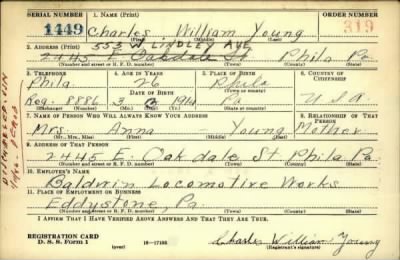 SERIAL NUMBER 1. NAME (Print) ORDER NUMBER
1449 Charles William Young 319
(First) (Middle) (Last)
553 W LINDLEY AVE
2. ADDRESS (Print)
2445 E Oakdale St Phila Pa.
(Number and street or R. F. D. number) (Town) (County) (State)
3. TELEPHONE 4. AGE IN YEARS 5. PLACE OF BIRTH 6. COUNTRY OF CITIZENSHIP
Phila 26 Phila
DATE OF BIRTH (Town or county)
Reg. 8586 3 1914 Pa. U.S.A.
(Exchange) (Number) (Mo.) (Day) (Yr.) (State or country)
7. NAME OF PERSON WHO WILL ALWAYS KNOW YOUR ADDRESS 8. RELATIONSHIP OF THAT PERSON
Mrs. Anna Young Mother
(Mr., Mrs., Miss) (First) (Middle) (Last)
9. ADDRESS OF THAT PERSON
2445 E. Oakdale St Phila Pa.
(Number and street or R. F. D. number) (Town) (County) (State)
10. EMPLOYER'S NAME
Baldwin Locomotive Works
11. PLACE OF EMPLOYMENT OR BUSINESS
Eddystone, Pa.
(Number and street or R. F. D. number) (Town) (County) (State)
I AFFIRM THAT I HAVE VERIFIED ABOVE ANSWERS AND THAT THEY ARE TRUE.
REGISTRATION CARD
D. S. S. Form 1 (over) 16—17105 Charles William Young
(Registrant's signature)